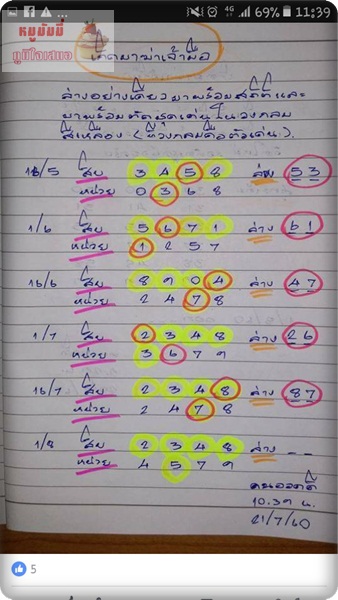 4G 69% 11:39
หมูบัมมี่
ล่างอย่างเดียวมาพร้อมสถิติและ
มาพร้อมตัดชุดเด่นในวงกลม
สีเหลือง (ที่วงกลมคือตัวเด่น).
16/5 สิบ 3 4 5 8 ล่าง 53
หน่วย 0 3 6 8
1/6 สิบ 5 6 7 1 ล่าง 61
หน่วย 1 2 5 7
16/6 สิบ 8 9 0 4 ล่าง 47
หน่วย 2 4 7 8
1/7 สิบ 2 3 4 8 ล่าง 26
หน่วย 3 6 7 9
16/7 สิบ 2 3 4 8 ล่าง 87
หน่วย 2 4 7 8
1/8 สิบ 2 3 4 8 ล่าง _ _
หน่วย 4 5 7 9
คนอวดดี
10.39 น.
21/7/60
5